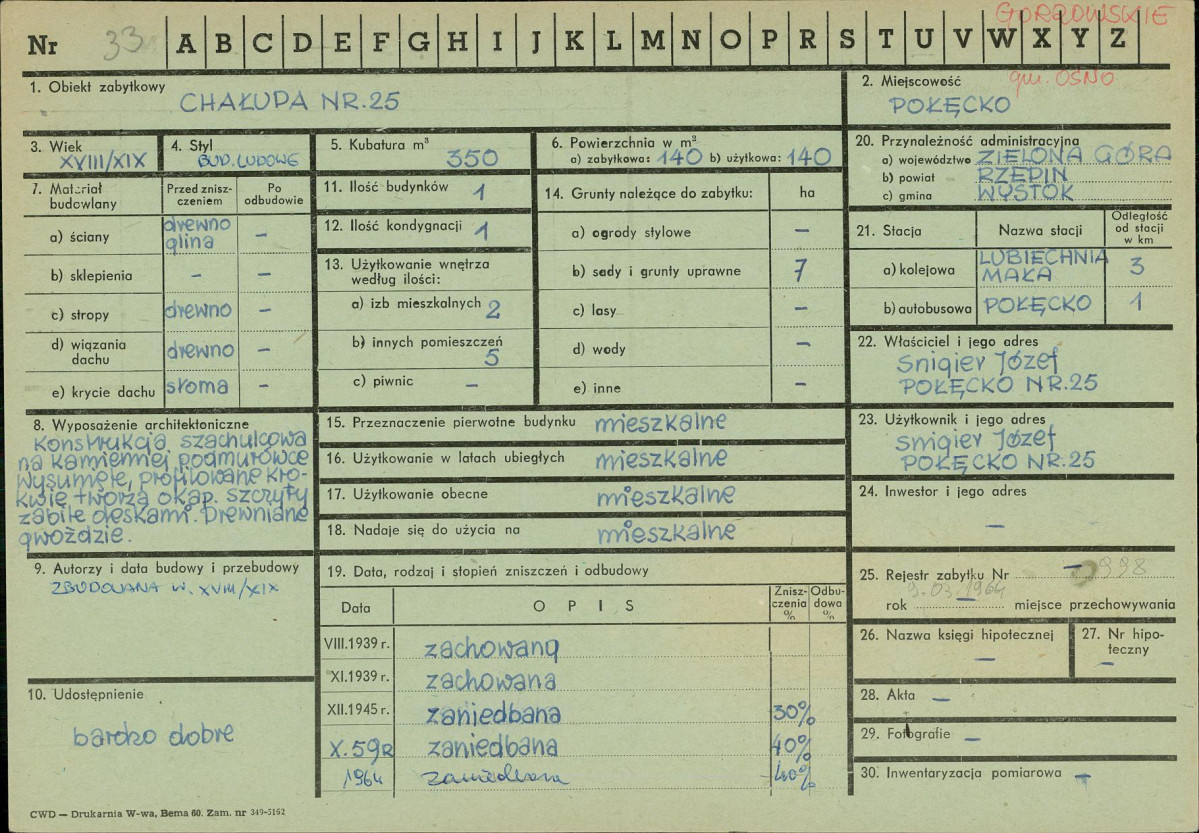 GORZOWSKIE
Nr 33 A B C D E F G H I J K L M N O P R S T U V W X Y Z
gm. OŚNO
1. Obiekt zabytkowy
CHAŁUPA NR.25
2. Miejscowość
POŁĘCKO
3. Wiek
XVIII/XIX
4. Styl
BUD. LUDOWE
5. Kubatura m³
350
6. Powierzchnia w m²
a) zabytkowa: 140 b) użytkowa: 140
20. Przynależność administracyjna
a) województwo ZIELONA GÓRA
b) powiat RZEPIN
c) gmina WYSTOK
7. Materiał budowlany
Przed zniszczeniem
Po odbudowie
a) ściany drewno glina –
b) sklepienia – –
c) stropy drewno –
d) wiązania dachu drewno –
e) krycie dachu słoma –
11. Ilość budynków 1
12. Ilość kondygnacji 1
13. Użytkowanie wnętrza
według ilości:
a) izb mieszkalnych 2
b) innych pomieszczeń
5
c) piwnic –
14. Grunty należące do zabytku: ha
a) ogrody stylowe –
b) sady i grunty uprawne 7
c) lasy –
d) wody –
e) inne –
21. Stacja Nazwa stacji Odległość od stacji w km
a) kolejowa LUBIECHNIA MAŁA 3
b) autobusowa POŁĘCKO 1
22. Właściciel i jego adres
Snigier Józef
POŁĘCKO NR.25
8. Wyposażenie architektoniczne
Konstrukcja szachulcowa
na kamiennej podmurówce
Wysunięte, profilowane kro-
kwie tworzą okap. szczyty
zabite deskami. Drewniane
gwoździe.
15. Przeznaczenie pierwotne budynku mieszkalne
16. Użytkowanie w latach ubiegłych mieszkalne
17. Użytkowanie obecne mieszkalne
18. Nadaje się do użycia na mieszkalne
23. Użytkownik i jego adres
Snigier Józef
POŁĘCKO NR.25
24. Inwestor i jego adres
–
9. Autorzy i data budowy i przebudowy
ZBUDOWANA W. XVIII/XIX
19. Data, rodzaj i stopień zniszczeń i odbudowy
Data OPIS Zniszczenia % Odbudowa %
VIII.1939 r. zachowana
XI.1939 r. zachowana
XII.1945 r. zaniedbana 30%
X.59R zaniedbana 40%
1964 zaniedbana 40%
25. Rejestr zabytku Nr – 998
9.03.1964
rok – miejsce przechowywania
26. Nazwa księgi hipotecznej
–
27. Nr hipo-
teczny
–
10. Udostępnienie
bardzo dobre
28. Akta –
29. Fotografie –
30. Inwentaryzacja pomiarowa –
CWD — Drukarnia W-wa, Bema 60. Zam. nr 349-5162